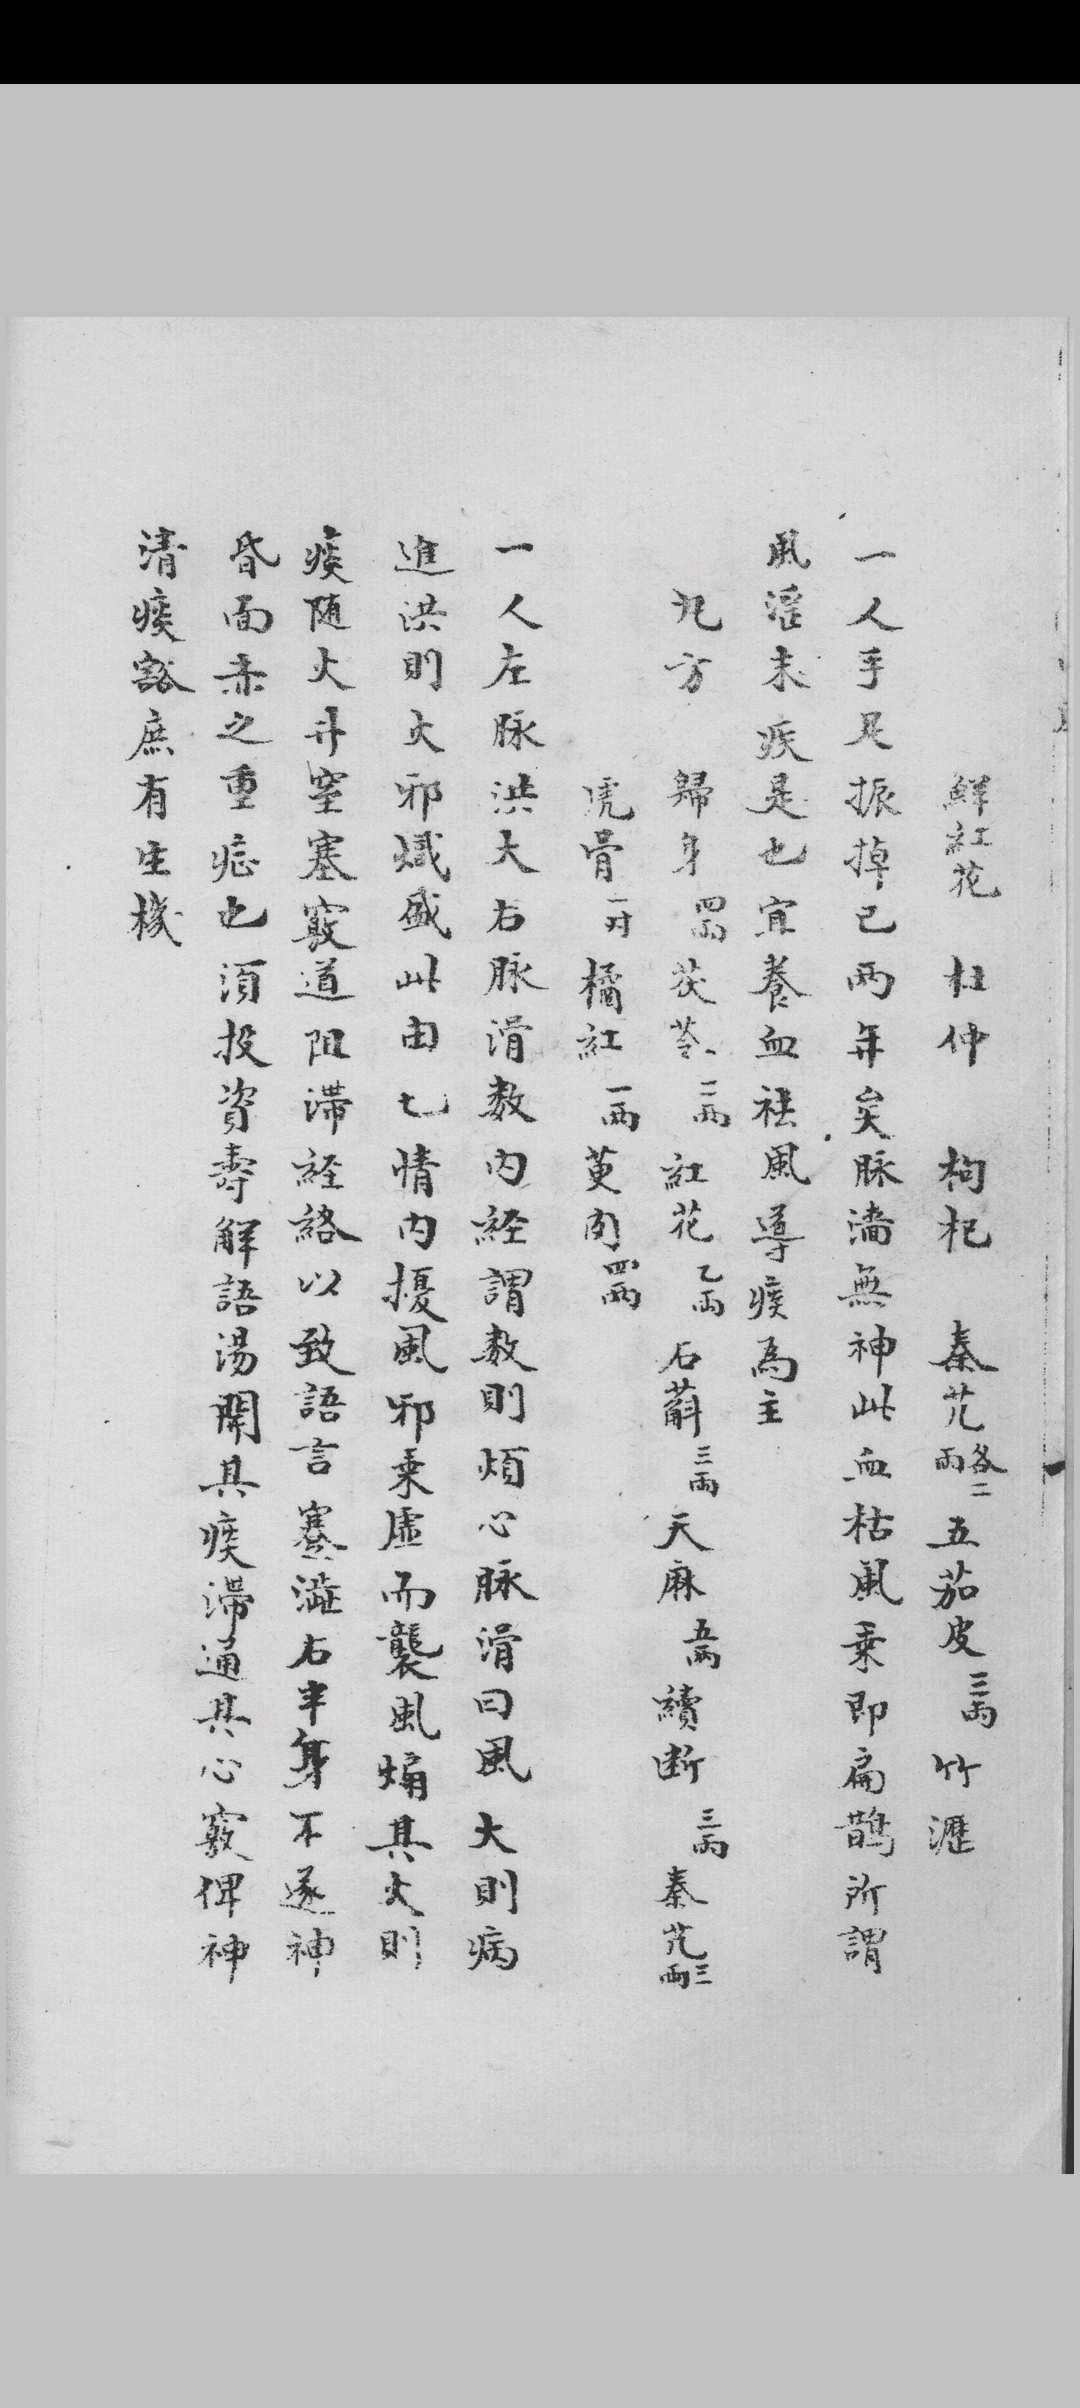 鮮紅花 杜仲 枸杞 秦艽各二兩 五茄皮三兩 竹瀝
一人手足振掉已兩年矣脉濇無神此血枯風乗即扁鵲所謂
風滛末疾是也宜養血祛風導痰為主
丸方 歸身四兩 茯苓二兩 紅花乙兩 石斛三兩 天麻五兩 續断三兩 秦艽三兩
虎骨一对 橘紅一兩 萸肉四兩
一人左脉洪大右脉滑数内経謂数則煩心脉滑曰風大則病
進洪則火邪熾盛此由七情内擾風邪乗虚而襲風煽其火則
痰随火升窒塞竅道阻滞経絡以致語言蹇澁右半身不遂神
昏面赤之重症也須投資壽解語湯開其痰滞通其心竅俾神
清痰豁庶有生機